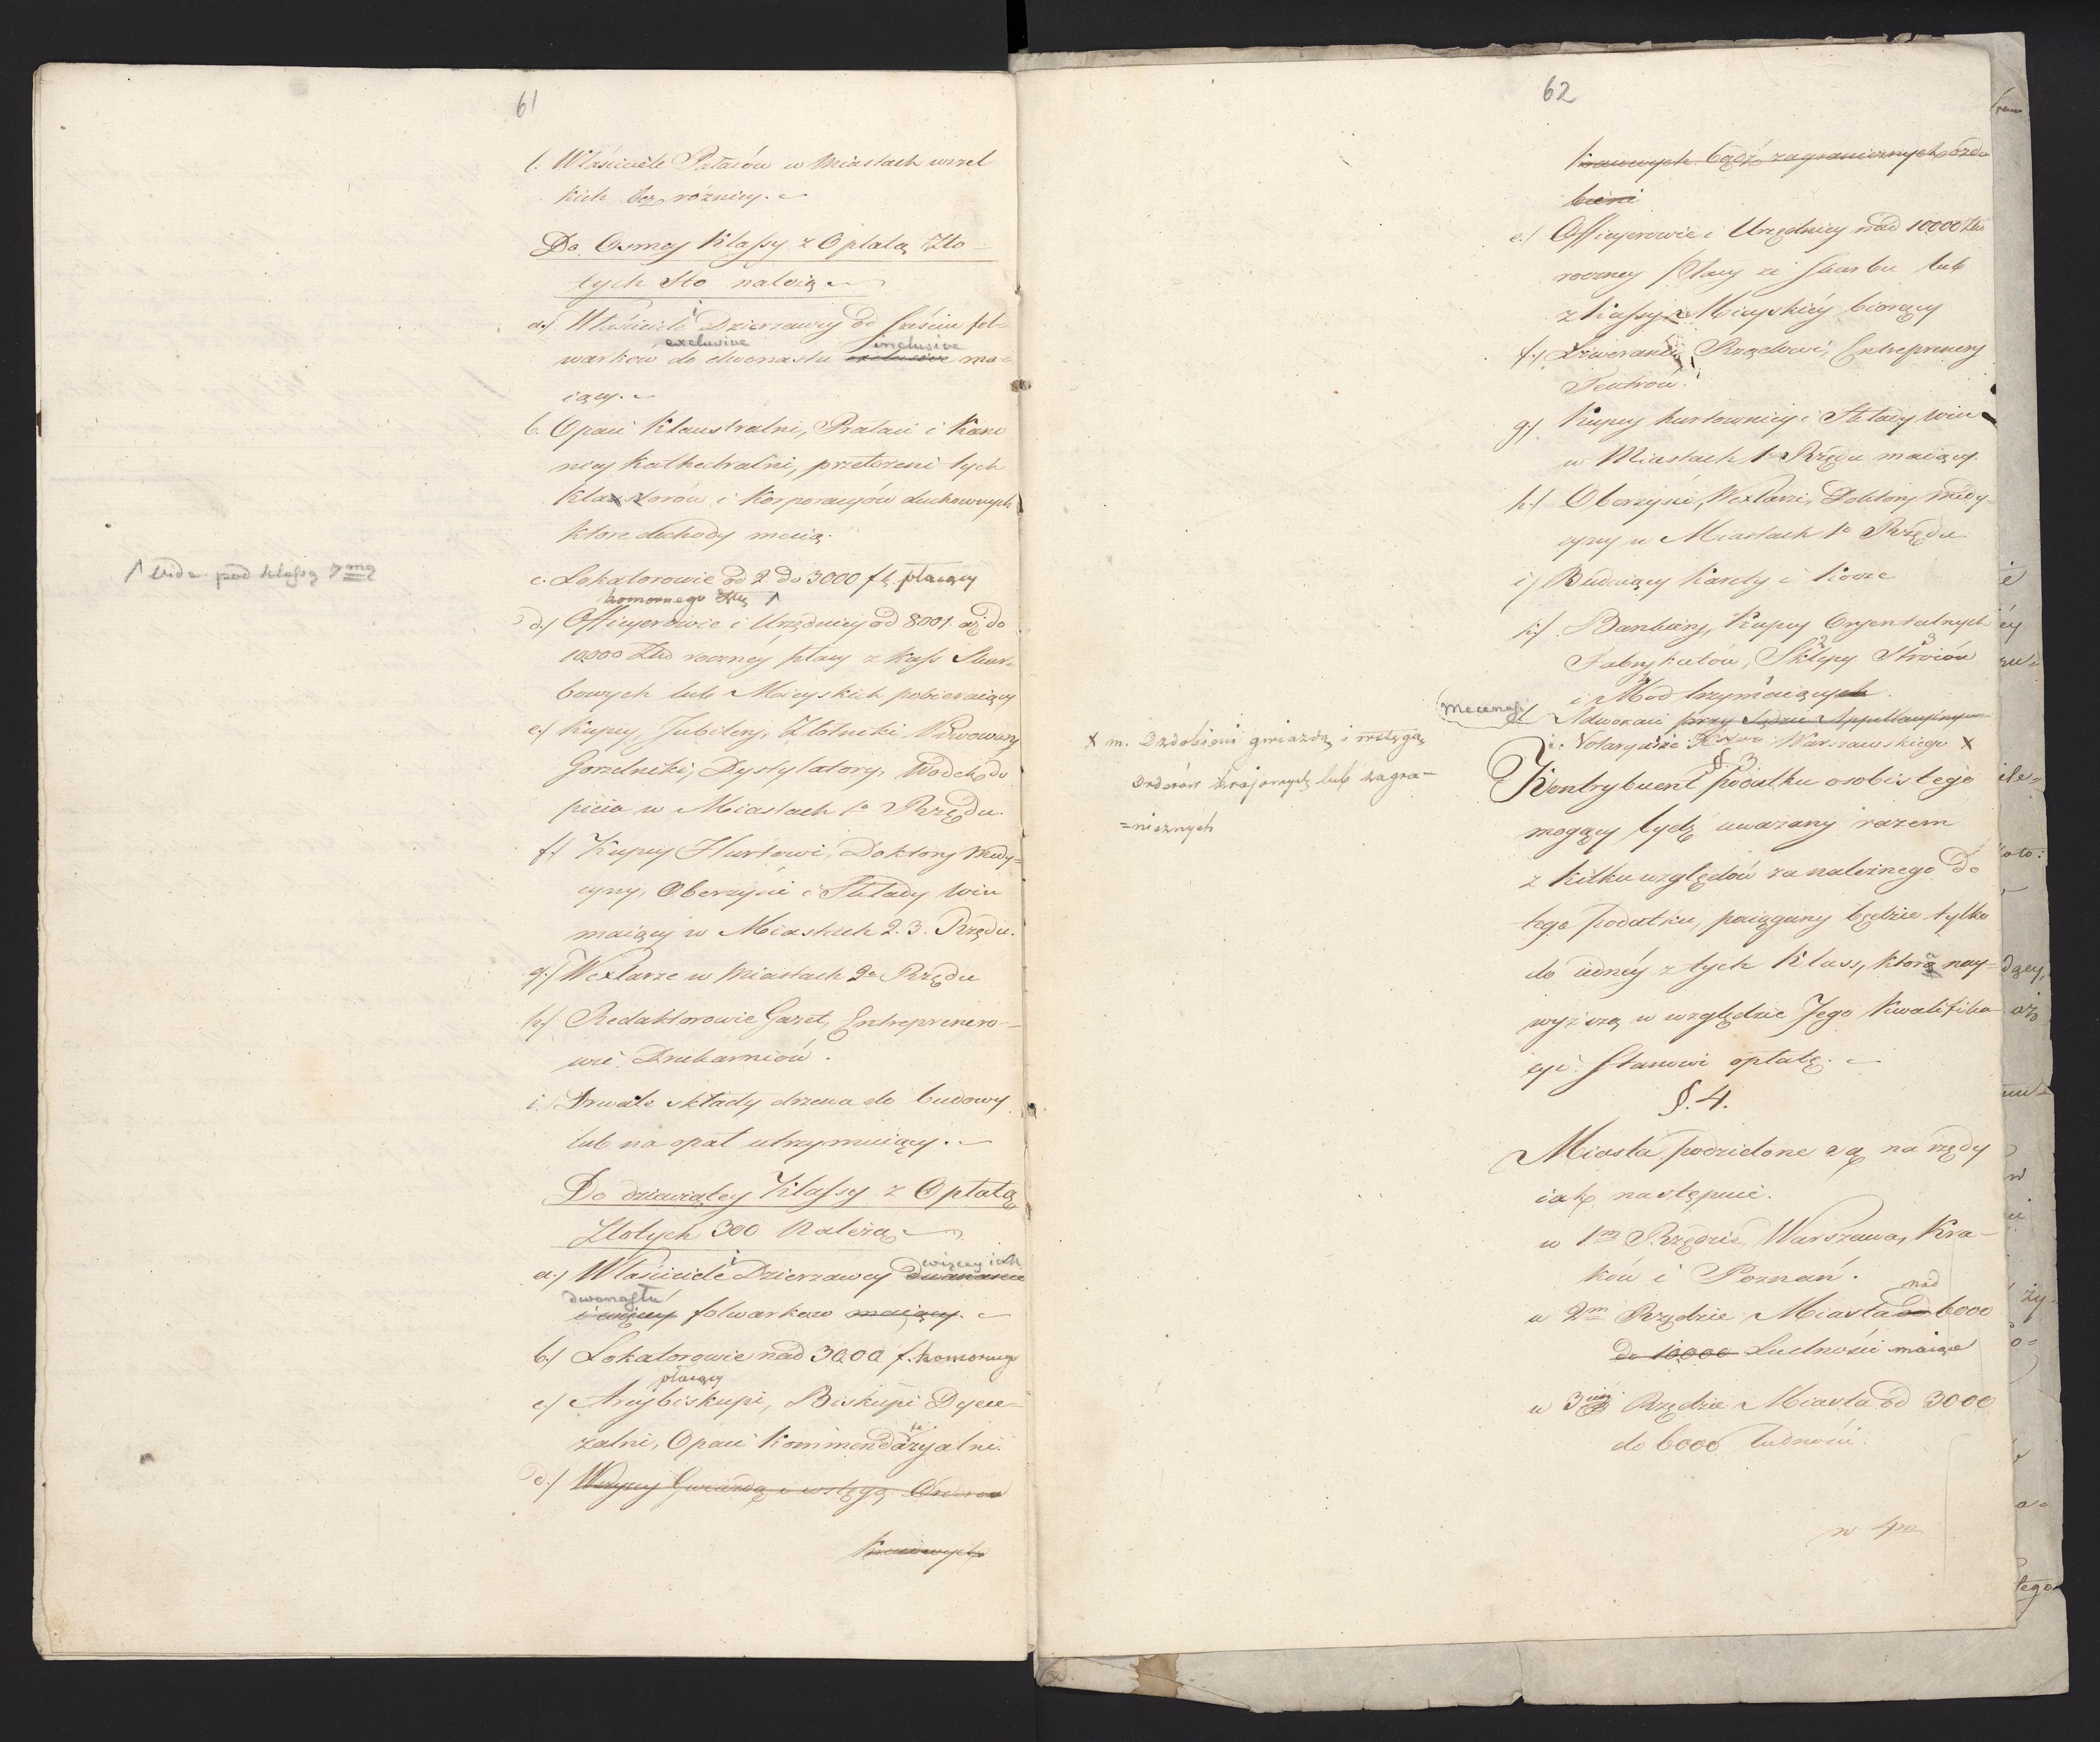 61
l. Właściciele Pałaców w Miastach wszel
kich bez różnicy.
Do Osmey Klassy z Opłatą Zło
tych Sto należą
a.) Właściciele i Dzierzawcy od sześciu fol=
exclusive inclusive
warkow do dwunastu exclusive ma=
iący.
b. Opaci Klaustralni, Prałaci i Kano
nicy Kathedralni, przełożeni tych
klasztorów i Korporacyów duchownych
ktore dochody maią.
Vide pod klassą 7mą
c. Lokatorowie od 2. do 3000 fl. płacący
komornego
d.) Officyerowie i Urzędnicy od 8001. aż do
10,000 Złł roczney płacy z Kass Skar=
bowych lub Mieyskich pobieraiący
e.) Kupcy, Jubilery, Złotniki Piwowary
Gorzelniki, Dystylatory, Wodek do
picia w Miastach 1o Rzędu.
f.) Kupcy Hurtowi, Doktory Medy=
cyny, Oberzyści i Składy Win
maiący w Miastach 2. 3. Rzędu.
g.) Wexlarze w Miastach 2o Rzędu
h.) Redaktorowie Gazet, Entreprenero=
wie Drukarniów.
i. Trwałe składy drzewa do budowy
lub na opał utrzymuiący.
Do dziewiątey Klassy z Opłatą
Złotych 300 Należą
więcey iak
a.) Właściciele i Dzierzawcy dwanaście
dwunastu
i więcey folwarkow maiący.
b.) Lokatorowie nad 3000 f. komornego
płacący
c.) Arcybiskupi, Biskupi Dyece=
zalni, Opaci Kommendataryalni.
d.) Wszyscy Gwiazdą i wstęgą Orderow
kraiowych
62
kraiowych bądź zagranicznych ozdo
bieni
e.) Officyerowie i Urzędnicy nad 10000 Złł
roczney Płacy ze Skarbu lub
z Kassy Mieyskiéy biorący
f.) Liweranci Rządowi, Entreprenery
Teatrów.
g.) Kupcy hurtownicy i Składy Win
w Miastach 1o Rzędu maiący.
h.) Oberzyści, Wexlarze, Doktory Medy=
cyny w Miastach 1o Rzędu
i.) Buduiący Karety i Kocze
k.) Bankiery, Kupcy Oryentalnych
Fabrykatów, Sklepy Stroiów
i Mód trzymaiących.
Mecenasi
l. Adwokaci przy Sądzie Appellacyinym
i Notaryusze Warszawskiego X
X m. Ozdobieni gwiazdą i wstęgą
Orderów krajowych lub zagra=
=nicznych
§. 3
Kontrybuent podatku osobistego
mogący bydź uwazany razem
z kilku względów za należnego do
tego podatku, pociągany będzie tylko
do iednéy z tych Klass, która nay=
wyższą w względzie Jego Kwalifika=
cyi stanowi opłatę.
§. 4.
Miasta podzielone są na rzędy
iak następuie.
w 1m Rzędzie Warszawa, Kra=
ków i Poznań.
nad
w 2m Rzędzie Miasta od 6000
do 10,000 Ludności maiące
w 3m Rzędzie Miasta od 3000
do 6000 ludności.
w 4m